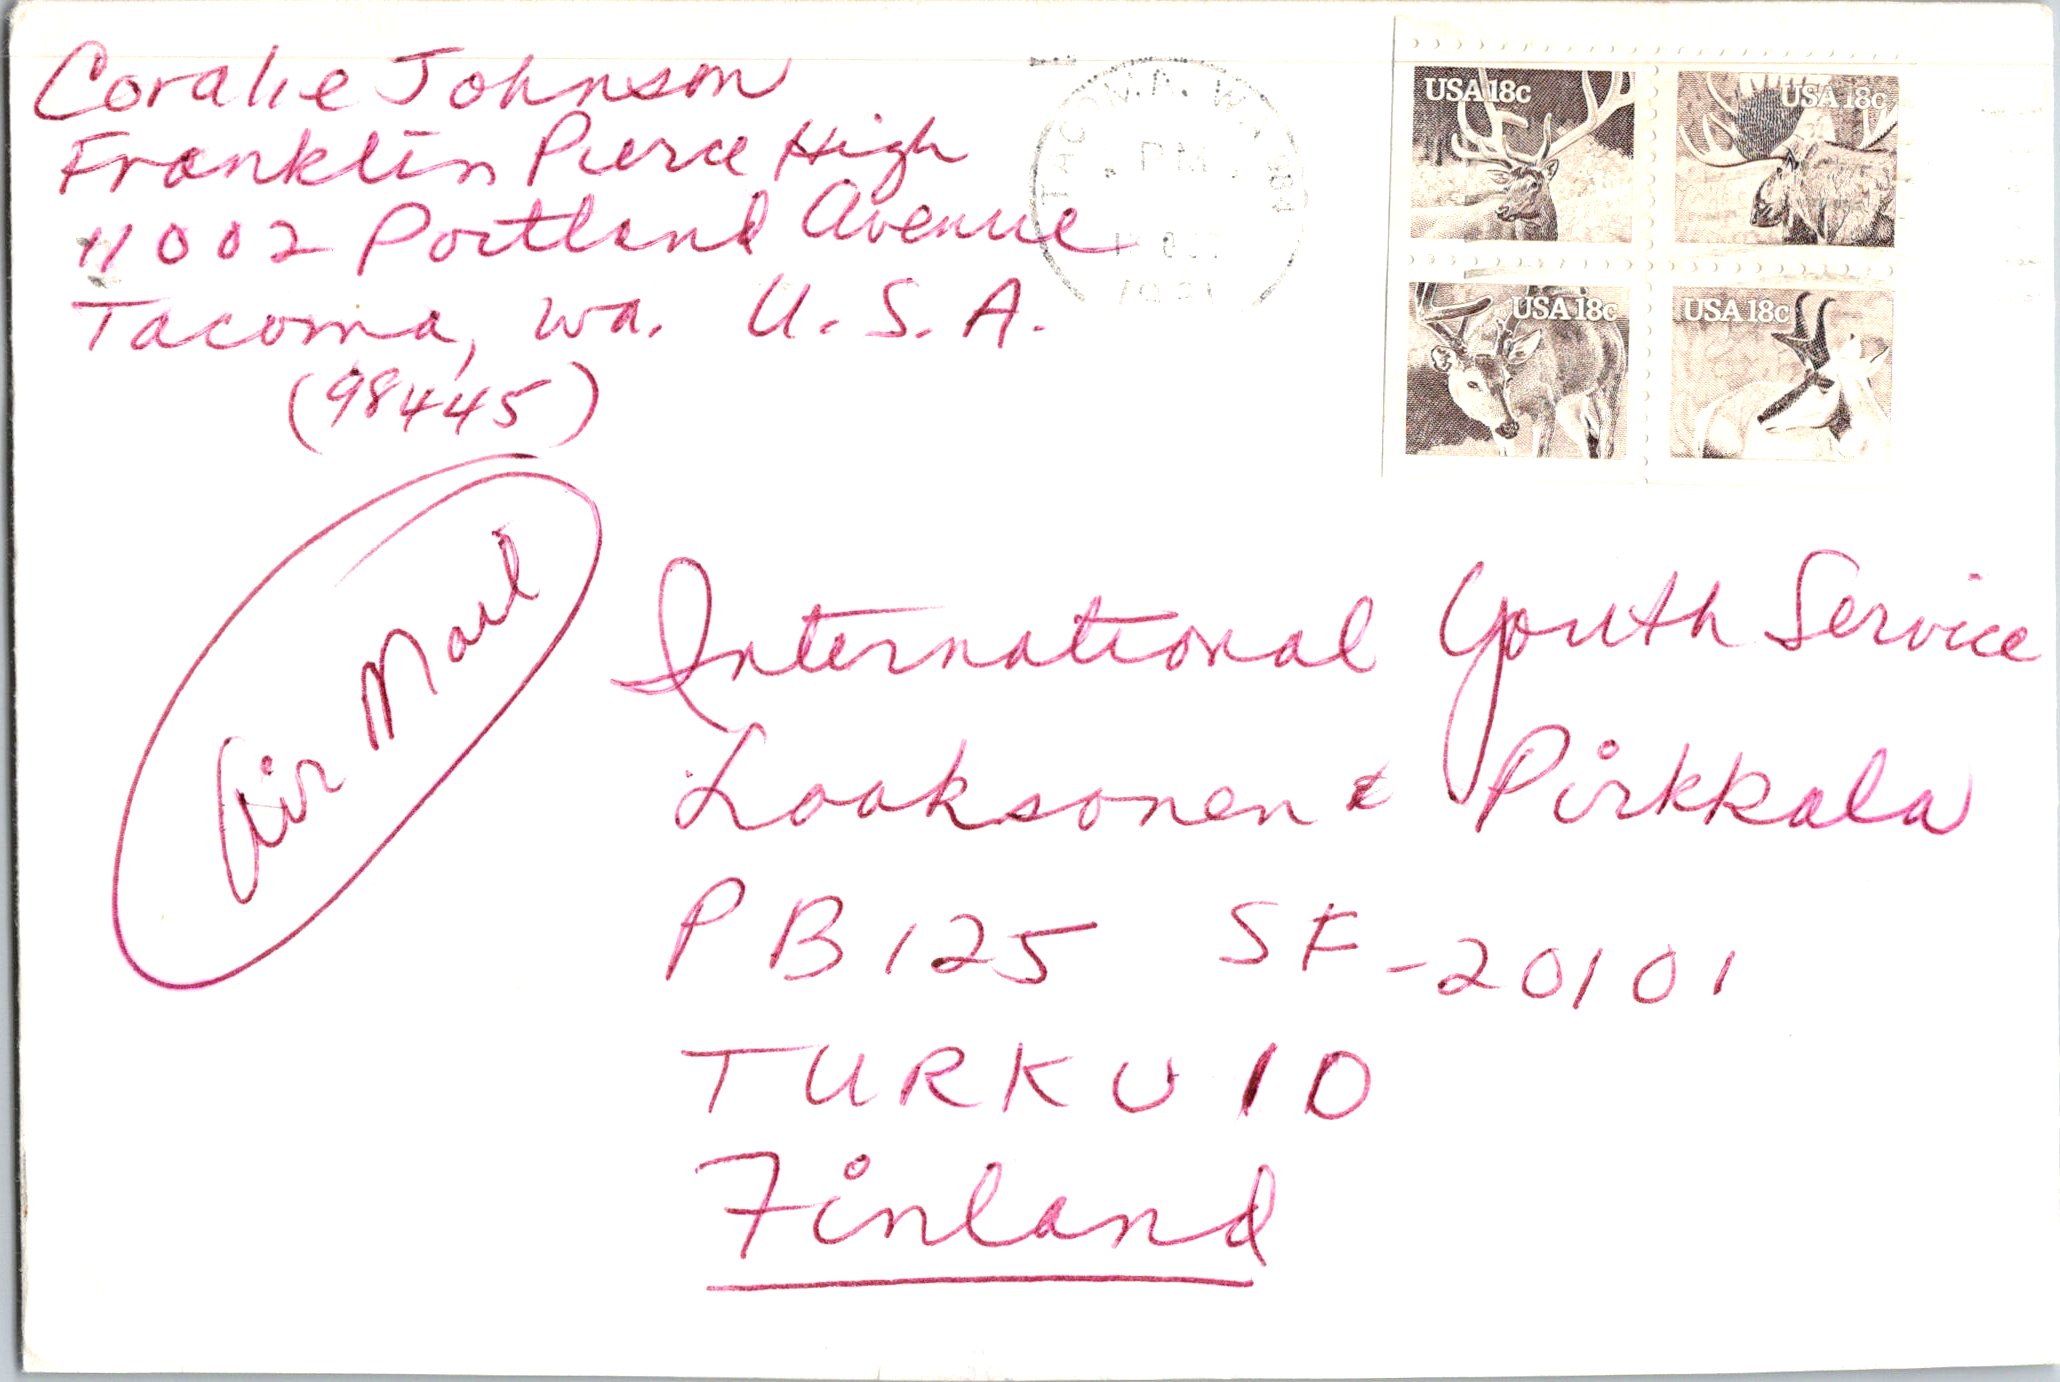 Coralie Johnson
Franklin Pierce High
11002 Portland Avenue
Tacoma, Wa. U.S.A.
(98445)
TACOMA, WA 984
PM
OCT
1981
USA 18c
USA 18c
USA 18c
USA 18c
Air Mail
International Youth Service
Laaksonen & Pirkkala
PB 125 SF-20101
TURKU 10
Finland